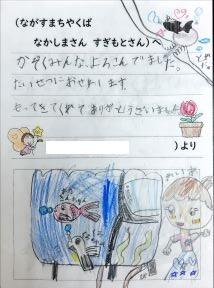 (ながすまちやくば
なかしまさん すぎもとさん)へ
かぞくみんな、よろこんでました。
たいせつにおせわします
もってきてくれてありがとうございました
)より